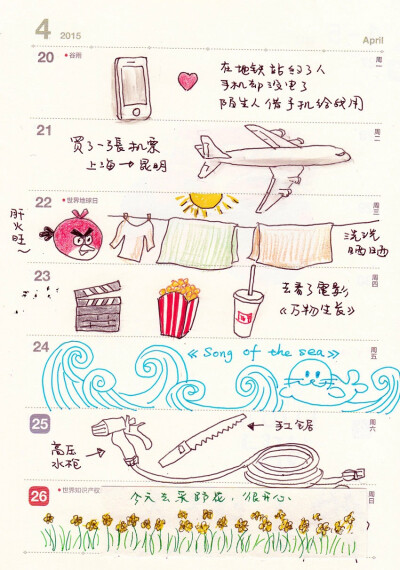 4 2015 April
20 •谷雨 周一
在地铁站约了人
手机却没电了
陌生人借手机给我用
21 周二
買了一張机票
上海→昆明
22 •世界地球日 周三
肝
火
旺~
洗洗
晒晒
23 周四
去看了電影
《万物生长》
24 周五
《Song of the sea》
25 周六
手工锯
高压
水枪
26 •世界知识产权 周日
今天去采野花，很开心.